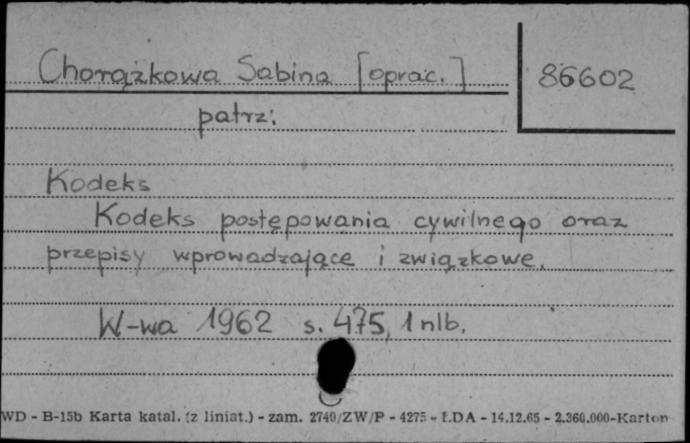 Chorążkowa Sabina [oprac.] 86602
patrz:
Kodeks
Kodeks postępowania cywilnego oraz
przepisy wprowadzające i związkowe.
W-wa 1962 s. 475, 1 nlb.
WD - B-15b Karta katal. (z liniat.) - zam. 2740/ZW/P - 4275 - LDA - 14.12.65 - 2.360.000-Karton